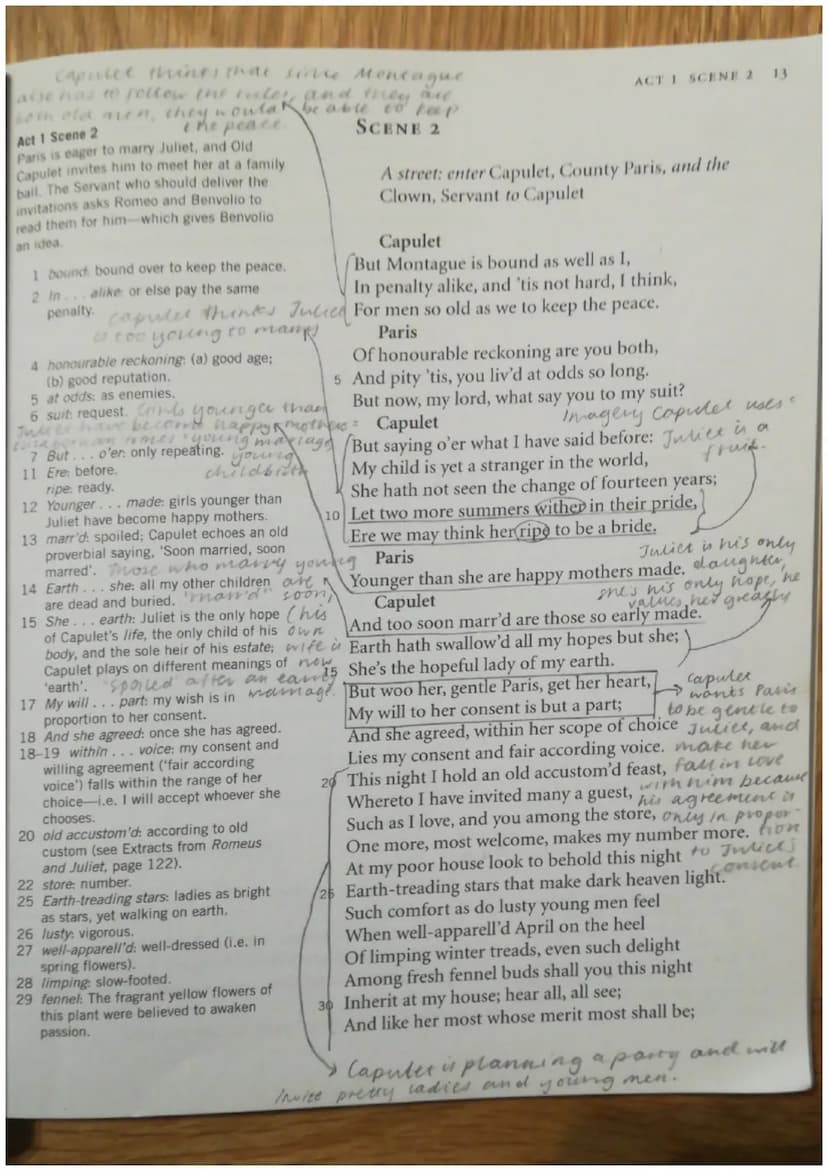 Capulet thinks that since Montague
also has to follow the rules, and they are
both old men, they would be able to keep
the peace.
ACT 1 SCENE 2 13
Act 1 Scene 2
Paris is eager to marry Juliet, and Old
Capulet invites him to meet her at a family
ball. The Servant who should deliver the
invitations asks Romeo and Benvolio to
read them for him—which gives Benvolio
an idea.
1 bound: bound over to keep the peace.
2 In . . . alike: or else pay the same
penalty.
capulet thinks Juliet
is too young to marry
4 honourable reckoning: (a) good age;
(b) good reputation.
5 at odds: as enemies.
6 suit: request.
Girls younger than
Juliet have become happy mothers
young marriage
7 But . . . o'er: only repeating.
young
childbirth
11 Ere: before.
ripe: ready.
12 Younger . . . made: girls younger than
Juliet have become happy mothers.
13 marr'd: spoiled; Capulet echoes an old
proverbial saying, 'Soon married, soon
marred'.
Those who marry young
are "marr'd" soon,
14 Earth . . . she: all my other children
are dead and buried.
15 She . . . earth: Juliet is the only hope
of Capulet's life, the only child of his
body, and the sole heir of his estate;
Capulet plays on different meanings of
'earth'.
(his
own
wife is
now
"spoiled" after an early
marriage.
17 My will . . . part: my wish is in
proportion to her consent.
18 And she agreed: once she has agreed.
18–19 within . . . voice: my consent and
willing agreement ('fair according
voice') falls within the range of her
choice—i.e. I will accept whoever she
chooses.
20 old accustom'd: according to old
custom (see Extracts from Romeus
and Juliet, page 122).
22 store: number.
25 Earth-treading stars: ladies as bright
as stars, yet walking on earth.
26 lusty: vigorous.
27 well-apparell'd: well-dressed (i.e. in
spring flowers).
28 limping: slow-footed.
29 fennel: The fragrant yellow flowers of
this plant were believed to awaken
passion.
SCENE 2
A street: enter Capulet, County Paris, and the
Clown, Servant to Capulet
Capulet
But Montague is bound as well as I,
In penalty alike, and 'tis not hard, I think,
For men so old as we to keep the peace.
Paris
Of honourable reckoning are you both,
5 And pity 'tis, you liv'd at odds so long.
But now, my lord, what say you to my suit?
Imagery Capulet uses:
Juliet is a
fruit.
Capulet
But saying o'er what I have said before:
My child is yet a stranger in the world,
She hath not seen the change of fourteen years;
10 Let two more summers wither in their pride,
Ere we may think her ripe to be a bride.
Paris
Younger than she are happy mothers made.
Juliet is his only
daughter,
she's his only hope, he
values her greatly
Capulet
And too soon marr'd are those so early made.
Earth hath swallow'd all my hopes but she;
15 She's the hopeful lady of my earth.
But woo her, gentle Paris, get her heart,
My will to her consent is but a part;
And she agreed, within her scope of choice
Lies my consent and fair according voice.
20 This night I hold an old accustom'd feast,
Whereto I have invited many a guest,
Such as I love, and you among the store,
One more, most welcome, makes my number more.
At my poor house look to behold this night
25 Earth-treading stars that make dark heaven light.
Such comfort as do lusty young men feel
When well-apparell'd April on the heel
Of limping winter treads, even such delight
Among fresh fennel buds shall you this night
30 Inherit at my house; hear all, all see;
And like her most whose merit most shall be;
capulet
wants Paris
to be gentle to
Juliet, and
make her
fall in love
with him because
his agreement is
only in propor-
tion
to Juliet's
consent
Capulet is planning a party and will
invite pretty ladies and young men.